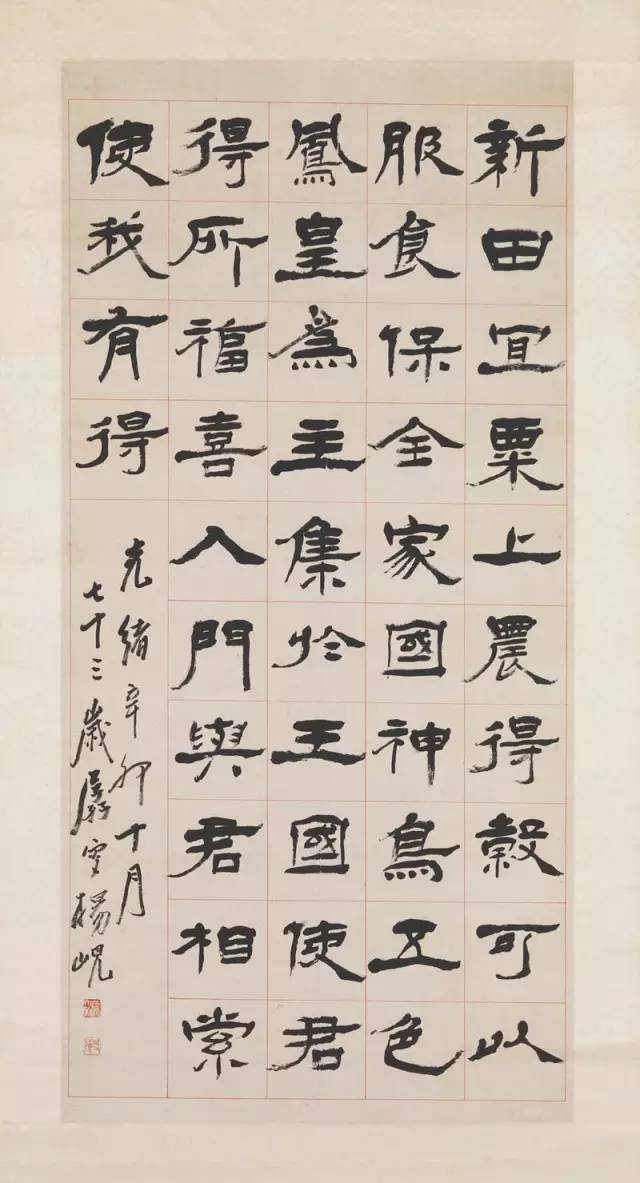 新田宜粟上農得穀可以
服食保全家國神鳥五色
鳳皇爲主集於王國使君
得所福喜入門與君相索
使我有得
光緒辛卯十月
七十三歲藐翁楊峴